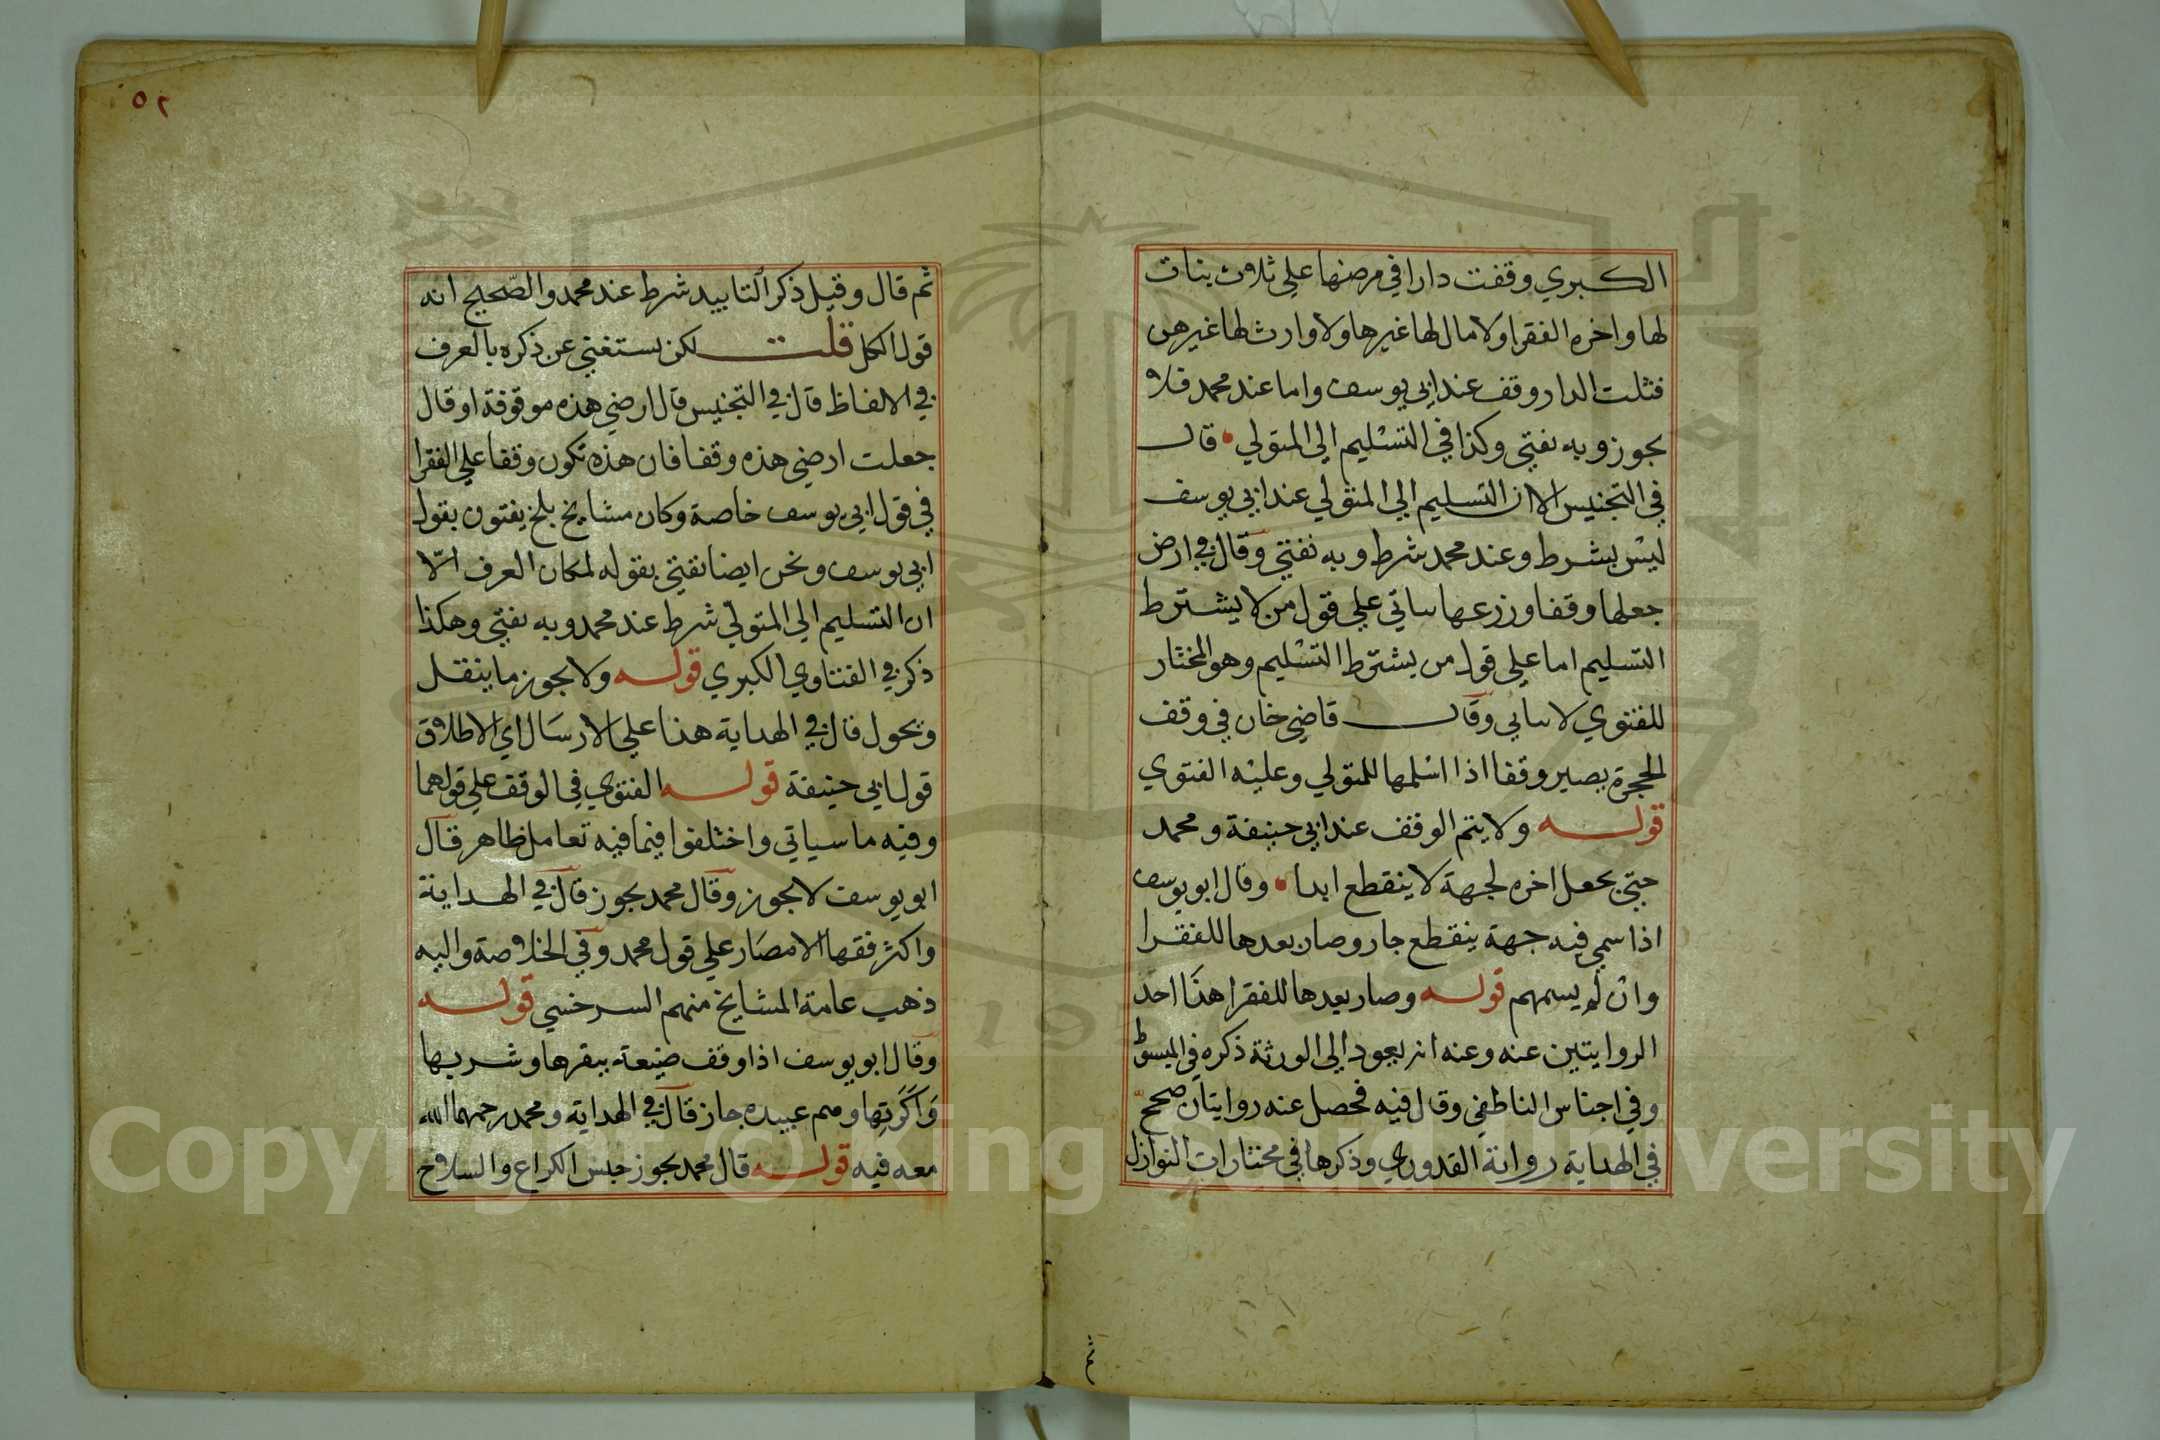 الكبري وقفت دارا في مرضها علي ثلاث بنات
لها واخره الفقرا ولا مال لها غيرها ولا وارث لها غيرهن
فثلث الدار وقف عند ابي يوسف واما عند محمد فلا
يجوز وبه نفتي وكذا في التسليم الي المتولي قال
في التجنيس الا ان التسليم الي المتولي عند ابي يوسف
ليس بشرط وعند محمد شرط وبه نفتي وقال في ارض
جعلها وقفا وزرعها ياتي علي قول من لا يشترط
التسليم اما علي قول من يشترط التسليم وهو المختار
للفتوي لا ياتي وقال قاضي خان في وقف
الحجرة يصير وقفا اذا اسلمها للمتولي وعليه الفتوي
قوله ولا يتم الوقف عند ابي حنيفة ومحمد
حتي يجعل اخره لجهة لا ينقطع ابدا وقال ابو يوسف
اذا سمي فيه جهة ينقطع جاز وصار بعدها للفقرا
وان لم يسمهم قوله وصار بعدها للفقرا هذا احد
الروايتين عنه وعنه انه يعود الي الورثة ذكره في المبسوط
وفي اجناس الناطفي وقال فيه فحصل عنه روايتان صحح
في الهداية رواية القدوري وذكرها في مختارات النوازل
٥٢
ثم قال وقيل ذكر التابيد شرط عند محمد والصحيح انه
قول الكل قلت لكن يستغني عن ذكره بالعرف
في الالفاظ قال في التجنيس قال ارضي هذه موقوفة او قال
جعلت ارضي هذه وقفا فان هذه تكون وقفا علي الفقرا
في قول ابي يوسف خاصة وكان مشايخ بلخ يفتون بقول
ابي يوسف ونحن ايضا نفتي بقوله لمكان العرف الّا
ان التسليم الي المتولّي شرط عند محمد وبه نفتي وهكذا
ذكر في الفتاوي الكبري قوله ولا يجوز ما ينقل
ويحول قال في الهداية هذا علي الارسال اي الاطلاق
قول ابي حنيفة قوله الفتوي في الوقف علي قولهما
وفيه ما سياتي واختلفوا فيما فيه تعامل ظاهر قال
ابو يوسف لا يجوز وقال محمد يجوز قال في الهداية
واكثر فقها الامصار علي قول محمد وفي الخلاصة واليه
ذهب عامة المشايخ منهم السرخسي قوله
وقال ابو يوسف اذا وقف ضيعة ببقرها وشربها
وَاَكَرَتِها وهم عبيده جاز قال في الهداية ومحمد رحمهما الله
معه فيه قوله قال محمد يجوز حبس الكراع والسلاح
Copyright © King Saud University